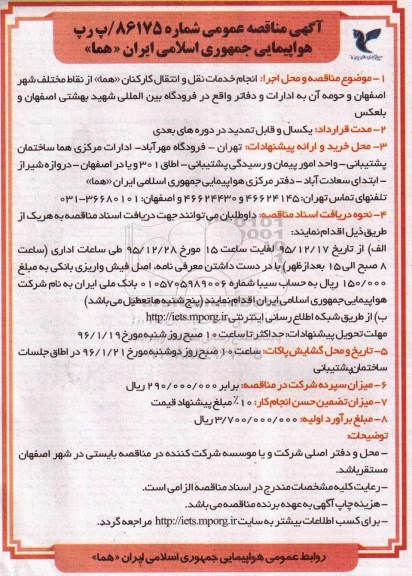 آگهی مناقصه عمومی شماره ۸۶۱۷۵/پ ر پ
هواپیمایی جمهوری اسلامی ایران «هما»
۱- موضوع مناقصه و محل اجرا: انجام خدمات نقل و انتقال کارکنان «هما» از نقاط مختلف شهر
اصفهان و حومه آن به ادارات و دفاتر واقع در فرودگاه بین المللی شهید بهشتی اصفهان و
بلعکس
۲- مدت قرارداد: یکسال و قابل تمدید در دوره های بعدی
۳- محل خرید و ارائه پیشنهادات: تهران - فرودگاه مهرآباد- ادارات مرکزی هما ساختمان
پشتیبانی- واحد امور پیمان و رسیدگی پشتیبانی - اطاق ۳۰۱ و یا در اصفهان - دروازه شیراز
- ابتدای سعادت آباد - دفتر مرکزی هواپیمایی جمهوری اسلامی ایران «هما»
تلفنهای تماس تهران: ۴۶۶۲۴۱۴۵ و ۴۶۶۲۴۴۳۰ و اصفهان: ۳۶۶۸۰۱۰۱-۰۳۱
۴- نحوه دریافت اسناد مناقصه: داوطلبان می توانند جهت دریافت اسناد مناقصه به هر یک از
طریق ذیل اقدام نمایند:
الف) از تاریخ ۹۵/۱۲/۱۷ لغایت ساعت ۱۵ مورخ ۹۵/۱۲/۲۸ طی ساعات اداری (ساعت
۸ صبح الی ۱۵ بعدازظهر) با در دست داشتن معرفی نامه، اصل فیش واریزی بانکی به مبلغ
۱۵۰/۰۰۰ ریال به حساب سیبا شماره ۰۱۰۵۷۰۵۹۸۹۰۰۶ بانک ملی ایران به نام شرکت
هواپیمایی جمهوری اسلامی ایران اقدام نمایند (پنج شنبه ها تعطیل می باشد)
ب) از طریق شبکه اطلاع رسانی اینترنتی http://iets.mporg.ir
مهلت تحویل پیشنهادات: حداکثر تا ساعت ۱۰ صبح روز شنبه مورخ ۹۶/۱/۱۹
۵- تاریخ و محل گشایش پاکات: ساعت ۱۰ صبح روز دوشنبه مورخ ۹۶/۱/۲۱ در اطاق جلسات
ساختمان پشتیبانی
۶- میزان سپرده شرکت در مناقصه: برابر ۲۹۰/۰۰۰/۰۰۰ ریال
۷- میزان تضمین حسن انجام کار: ۱۰٪ مبلغ پیشنهاد قیمت
۸- مبلغ برآورد اولیه: ۳/۷۰۰/۰۰۰/۰۰۰ ریال
توضیحات:
- محل و دفتر اصلی شرکت و یا موسسه شرکت کننده در مناقصه بایستی در شهر اصفهان
مستقر باشد.
- رعایت کلیه مشخصات مندرج در اسناد مناقصه الزامی است.
- هزینه چاپ آگهی به عهده برنده مناقصه می باشد.
- برای کسب اطلاعات بیشتر به سایت http://iets.mporg.ir مراجعه گردد.
روابط عمومی هواپیمایی جمهوری اسلامی ایران «هما»